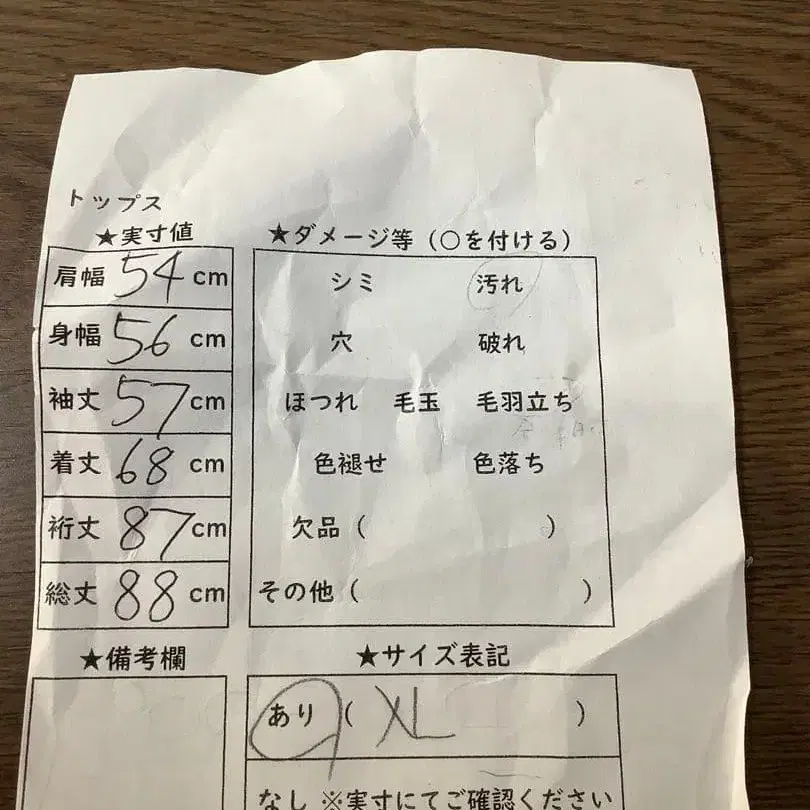 トップス
★実寸値
肩幅 54 cm
身幅 56 cm
袖丈 57 cm
着丈 68 cm
裄丈 87 cm
総丈 88 cm
★備考欄
★ダメージ等（○を付ける）
シミ 汚れ
穴 破れ
ほつれ 毛玉 毛羽立ち
色褪せ 色落ち
欠品（ ）
その他（ ）
★サイズ表記
あり（ XL ）
なし ※実寸にてご確認ください